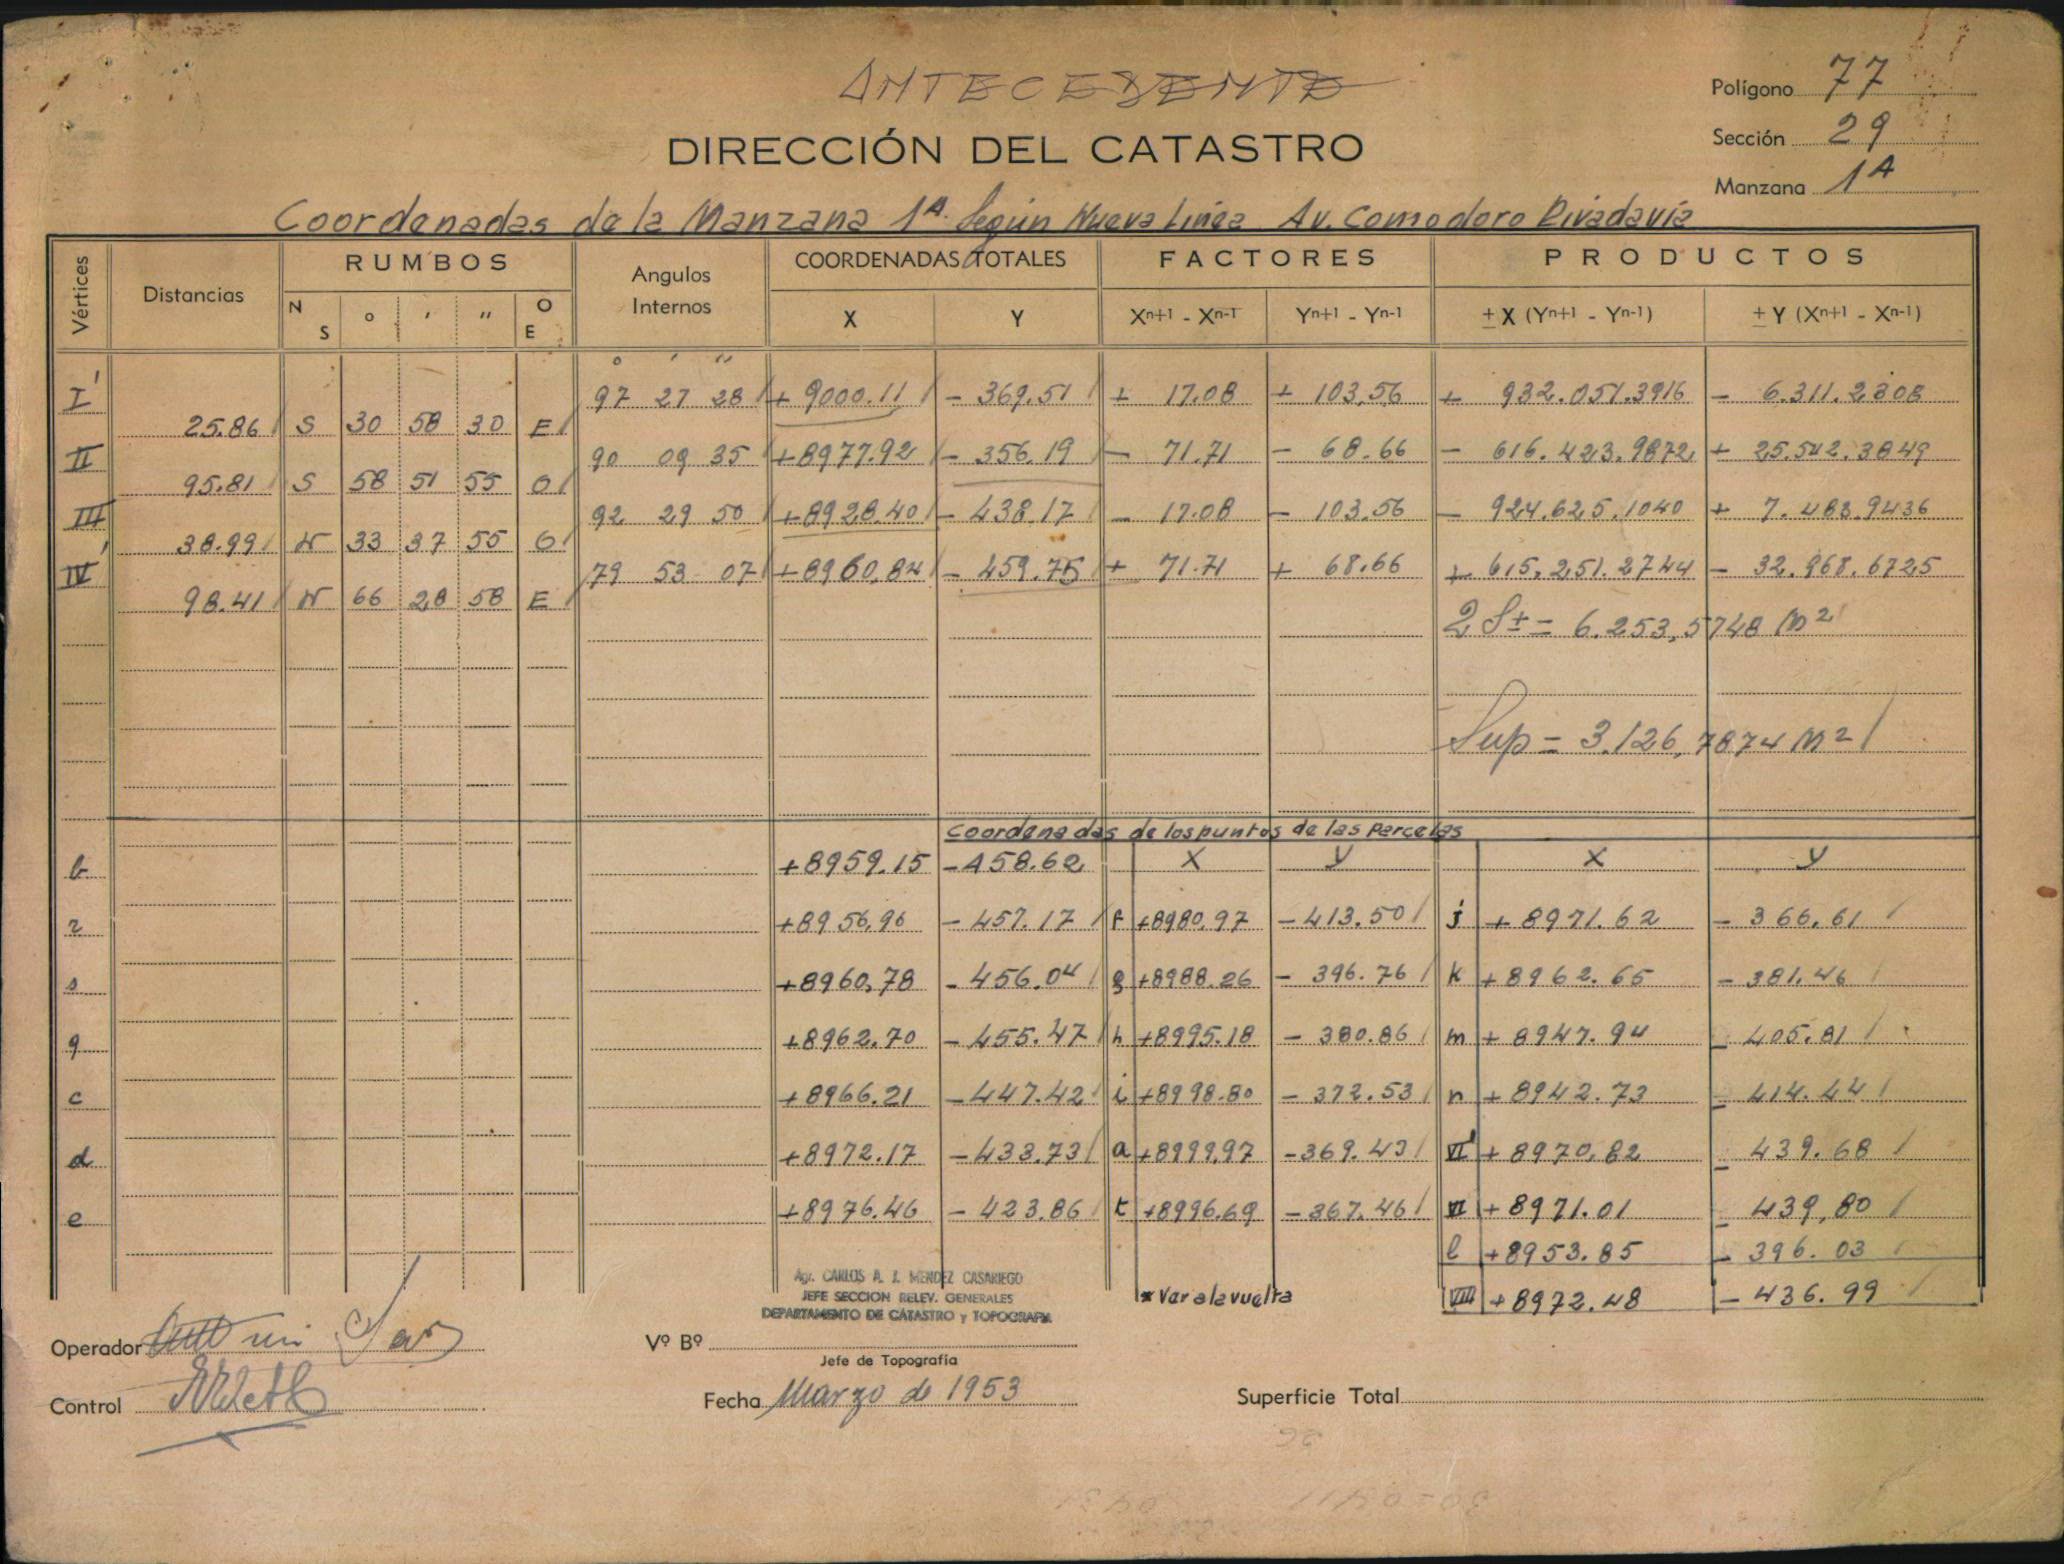 ANTECEDENTE
Polígono 77
DIRECCIÓN DEL CATASTRO
Sección 29
Manzana 1A
Coordenadas de la Manzana 1A. Según Nueva Linea Av. Comodoro Rivadavia
Vértices Distancias RUMBOS Angulos Internos COORDENADAS TOTALES FACTORES PRODUCTOS
N S ° ' " O E X Y Xn+1 - Xn-1 Yn+1 - Yn-1 ± X (Yn+1 - Yn-1) ± Y (Xn+1 - Xn-1)
° ' "
I' 97 27 28 + 9000.11 - 369.51 + 17.08 + 103,56 + 932.051.3916 - 6.311.2308
25.86 S 30 58 30 E
II 90 09 35 +8977.92 - 356.19 - 71.71 - 68.66 - 616.423.9872 + 25.542.3849
95.81 S 58 51 55 O
III 92 29 50 +8928.40 - 438.17 - 17.08 - 103.56 - 924.625.1040 + 7.483.9436
38.99 N 33 37 55 O
IV' 79 53 07 +8960,84 - 459.75 + 71.71 + 68.66 + 615.251.2744 - 32.968.6725
98.41 N 66 28 58 E
2 S± = 6.253,5748 m2
Sup = 3.126,7874 m2
Coordenadas de los puntos de las parcelas
b +8959.15 -458.62 X Y X Y
r +8956,96 - 457.17 f +8980,97 - 413.50 j + 8971.62 - 366,61
s +8960,78 - 456.04 g +8988.26 - 396.76 k +8962.65 - 381.46
q +8962.70 - 455.47 h +8995.18 - 380.86 m + 8947.94 - 405.81
c +8966.21 - 447.42 i +8998.80 - 372.53 n + 8942.73 - 414.44
d +8972.17 - 433.73 a +8999,97 - 369.43 VI' + 8970,82 - 439.68
e +8976.46 - 423.86 t +8996.69 - 367.46 VI + 8971.01 - 439,80
l +8953.85 - 396.03
Agr. CARLOS A. J. MENDEZ CASARIEGO
JEFE SECCION RELEV. GENERALES
DEPARTAMENTO DE CATASTRO y TOPOGRAFIA
* Ver a la vuelta
VIII +8972.48 - 436.99
Operador
Vº Bº
Jefe de Topografía
Control
Fecha Marzo de 1953
Superficie Total